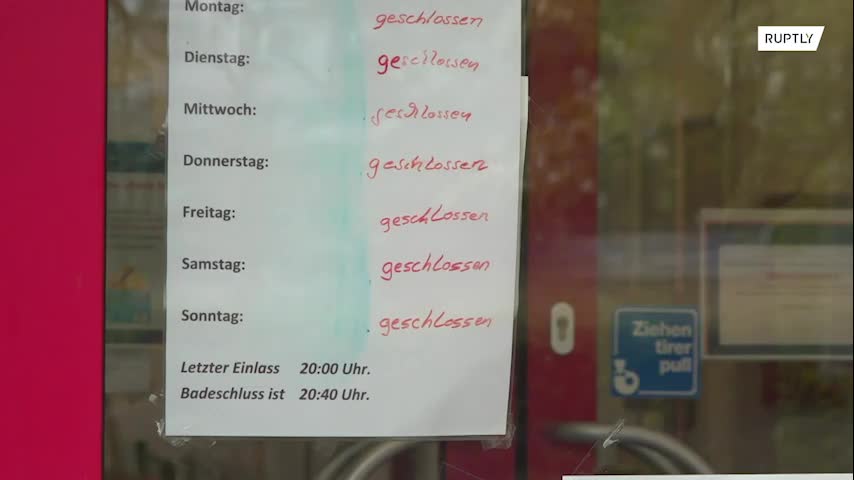 RUPTLY
Montag: geschlossen
Dienstag: geschlossen
Mittwoch: geschlossen
Donnerstag: geschlossen
Freitag: geschlossen
Samstag: geschlossen
Sonntag: geschlossen
Letzter Einlass 20:00 Uhr.
Badeschluss ist 20:40 Uhr.
Ziehen
tirer
pull